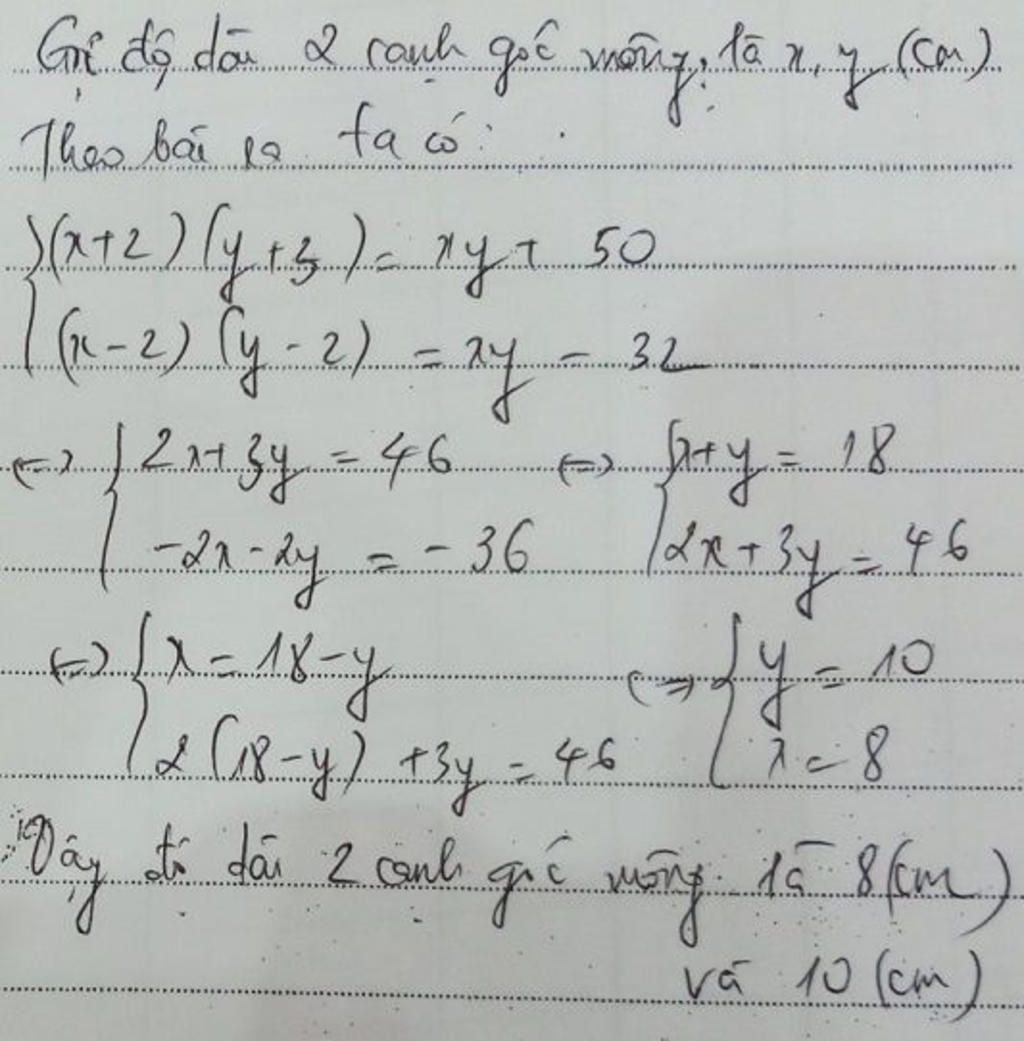 Gọi độ dài 2 cạnh góc vuông là x, y (cm)
Theo bài ra ta có:
(x+2)(y+3) = xy + 50
(x-2)(y-2) = xy - 32
<=> 2x+3y = 46 <=> x+y = 18
-2x-2y = -36 2x+3y = 46
<=> x = 18-y <=> y = 10
2(18-y) +3y = 46 x = 8
Vậy độ dài 2 cạnh góc vuông là 8 (cm)
và 10 (cm)